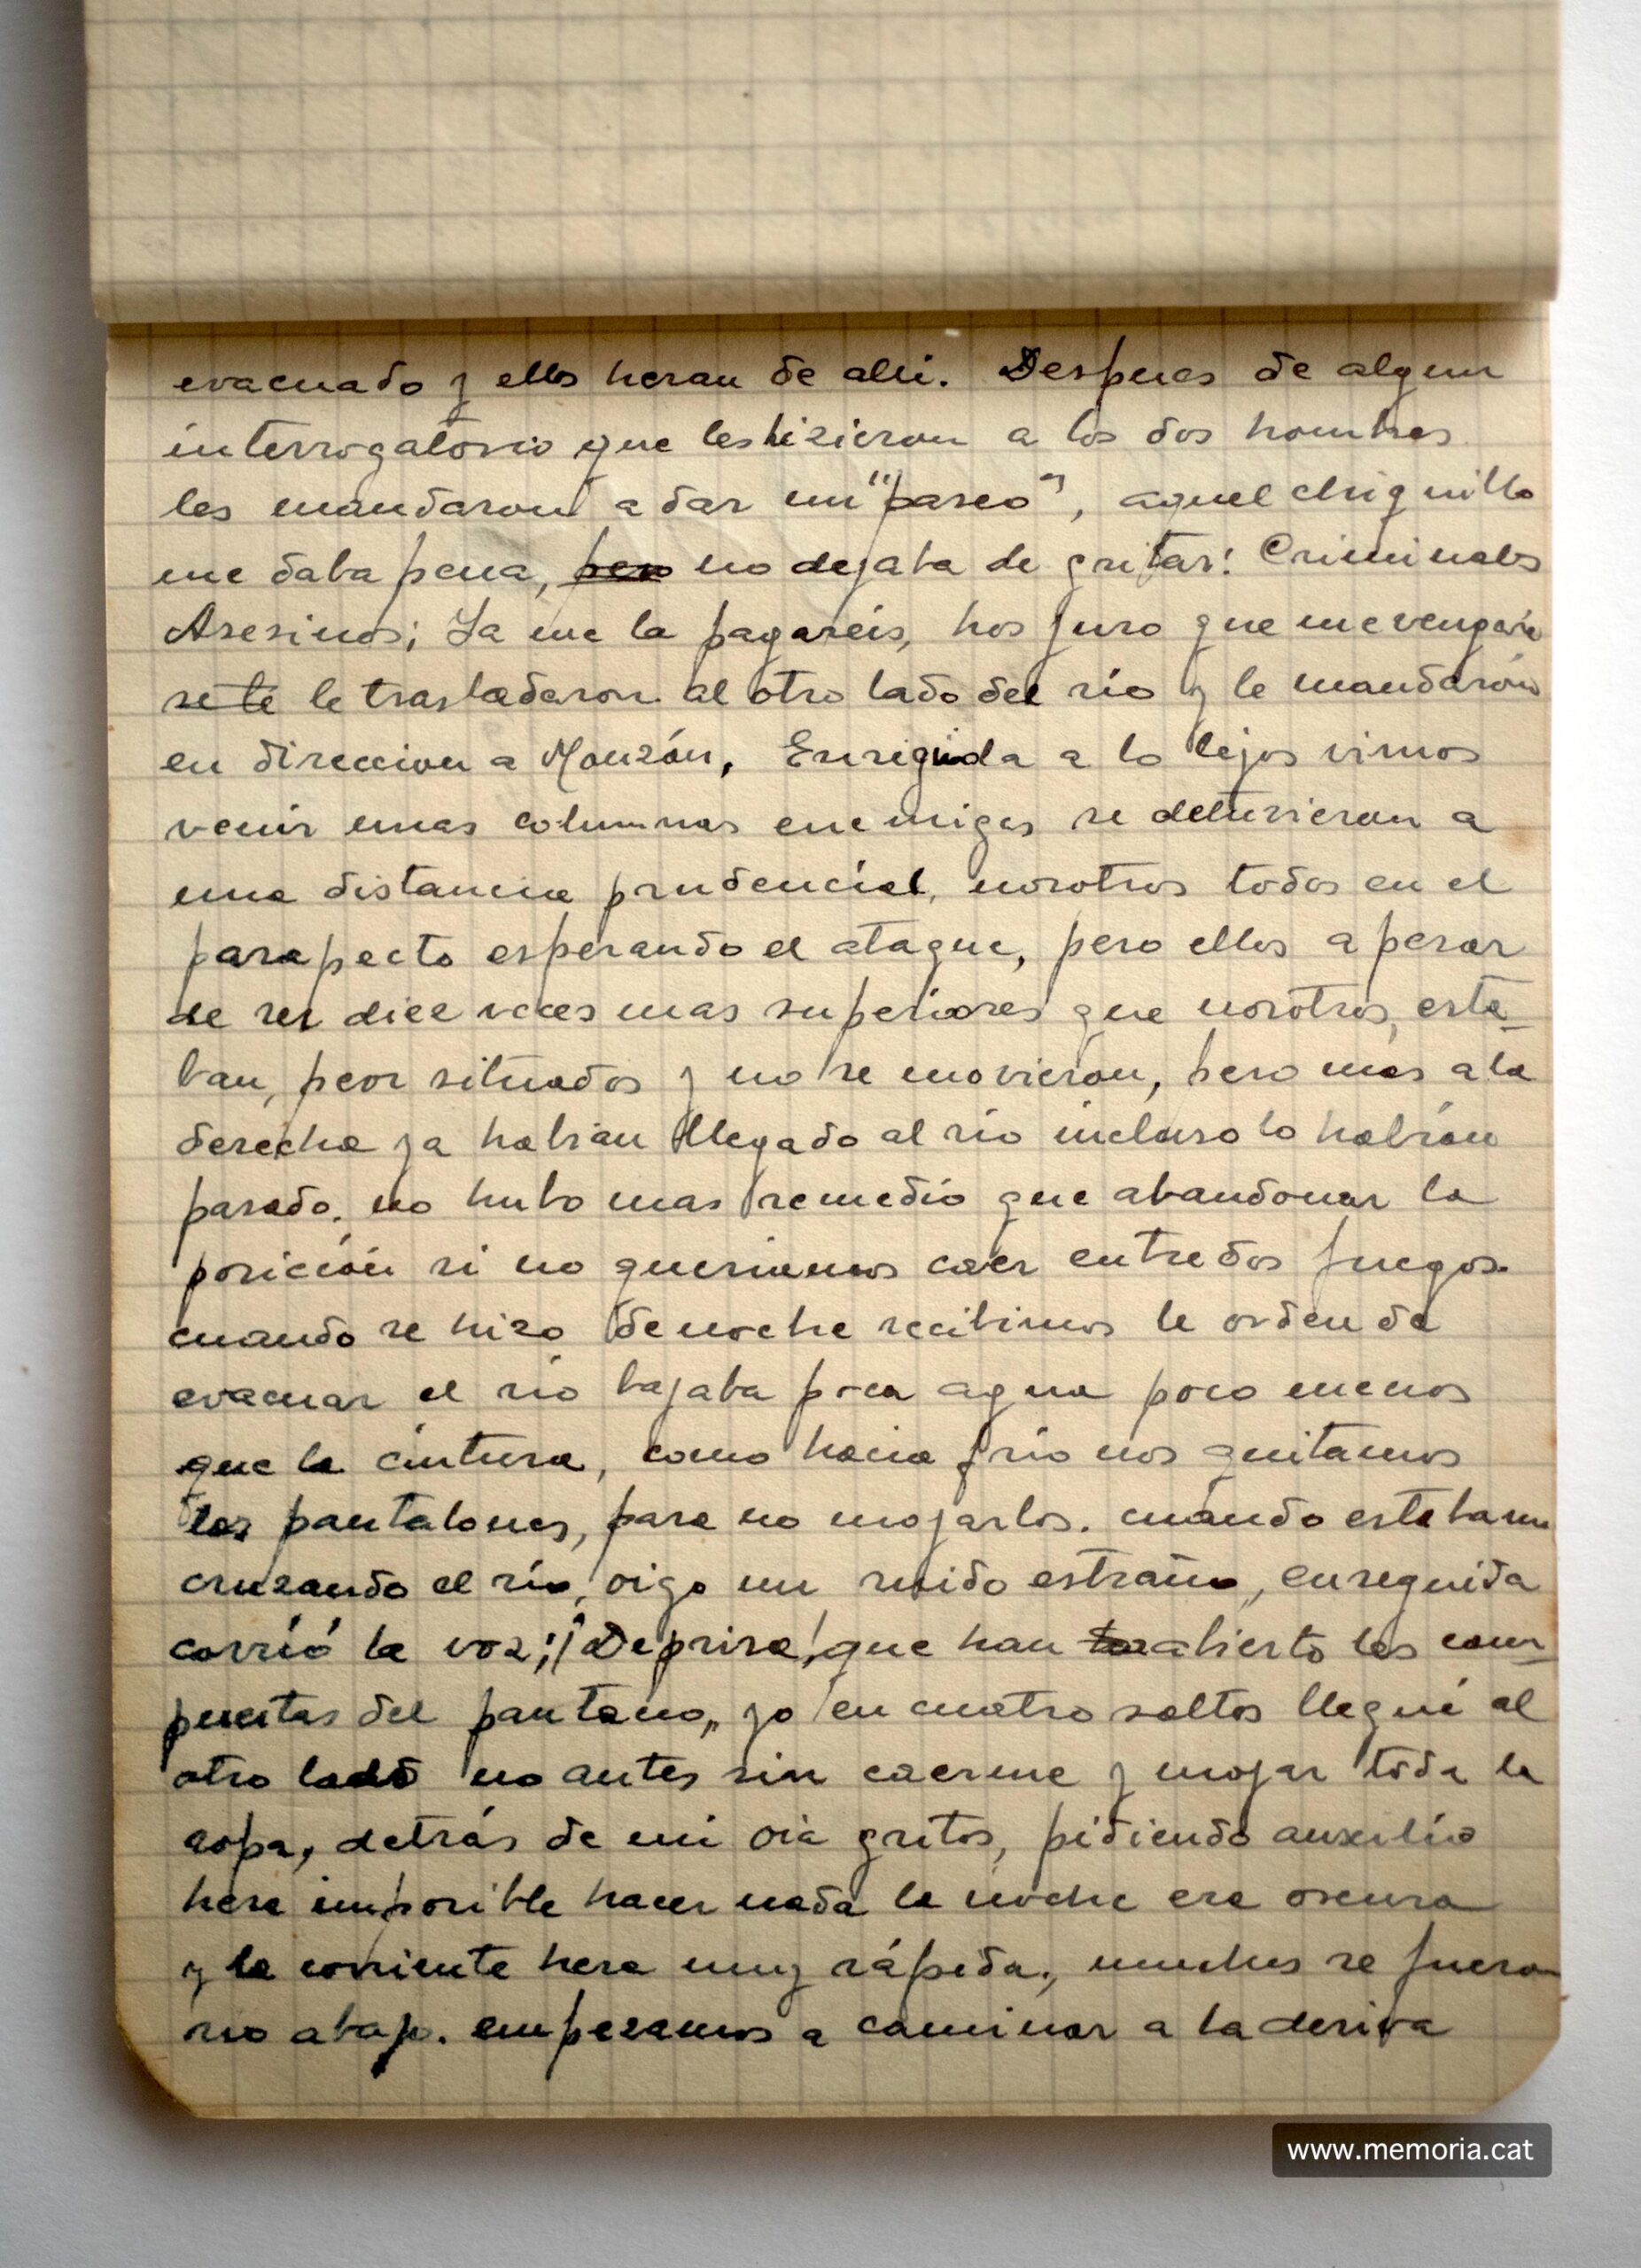 evacuado y ellos heran de alli. Despues de algun
interrogatorio que les hizieron a los dos hombres
les mandaron a dar un "paseo", aquel chiquillo
me daba pena, pero no dejaba de gritar! Criminales
Asesinos; Ya me la pagareis, hos juro que me vengaria
se te le trasladaron al otro lado del río y le mandarón
en direccion a Monzón, Enseguida a lo lejos vimos
venir unas columnas enemigas se detuvieron a
una distancia prudencial, nosotros todos en el
parapecto esperando el ataque, pero ellos a pesar
de ser diez veces mas superiores que nosotros, esta-
ban, peor situados y no se movieron, pero mas a la
derecha ya habian llegado al río incluso lo habían
pasado. no hubo mas remedio que abandonar la
posición si no queriamos caer entre dos fuegos.
cuando se hizo de noche recibimos la orden de
evacuar el río bajaba poca agua poco menos
que la cintura, como hacia frío nos quitamos
los pantalones, para no mojarlos. cuando estabamos
cruzando el río, oigo un ruido estraño, enseguida
corrió la voz; ¡Deprisa! que han abierto las com-
puertas del pantano, yo en cuatro saltos llegué al
otro lado no antes sin caerme y mojar toda la
ropa, detrás de mi oia gritos, pidiendo auxilio
hera imposible hacer nada la noche era oscura
y la corriente hera muy rápida, muchos se fueron
rio abajo. empezamos a caminar a la deriva
www.memoria.cat